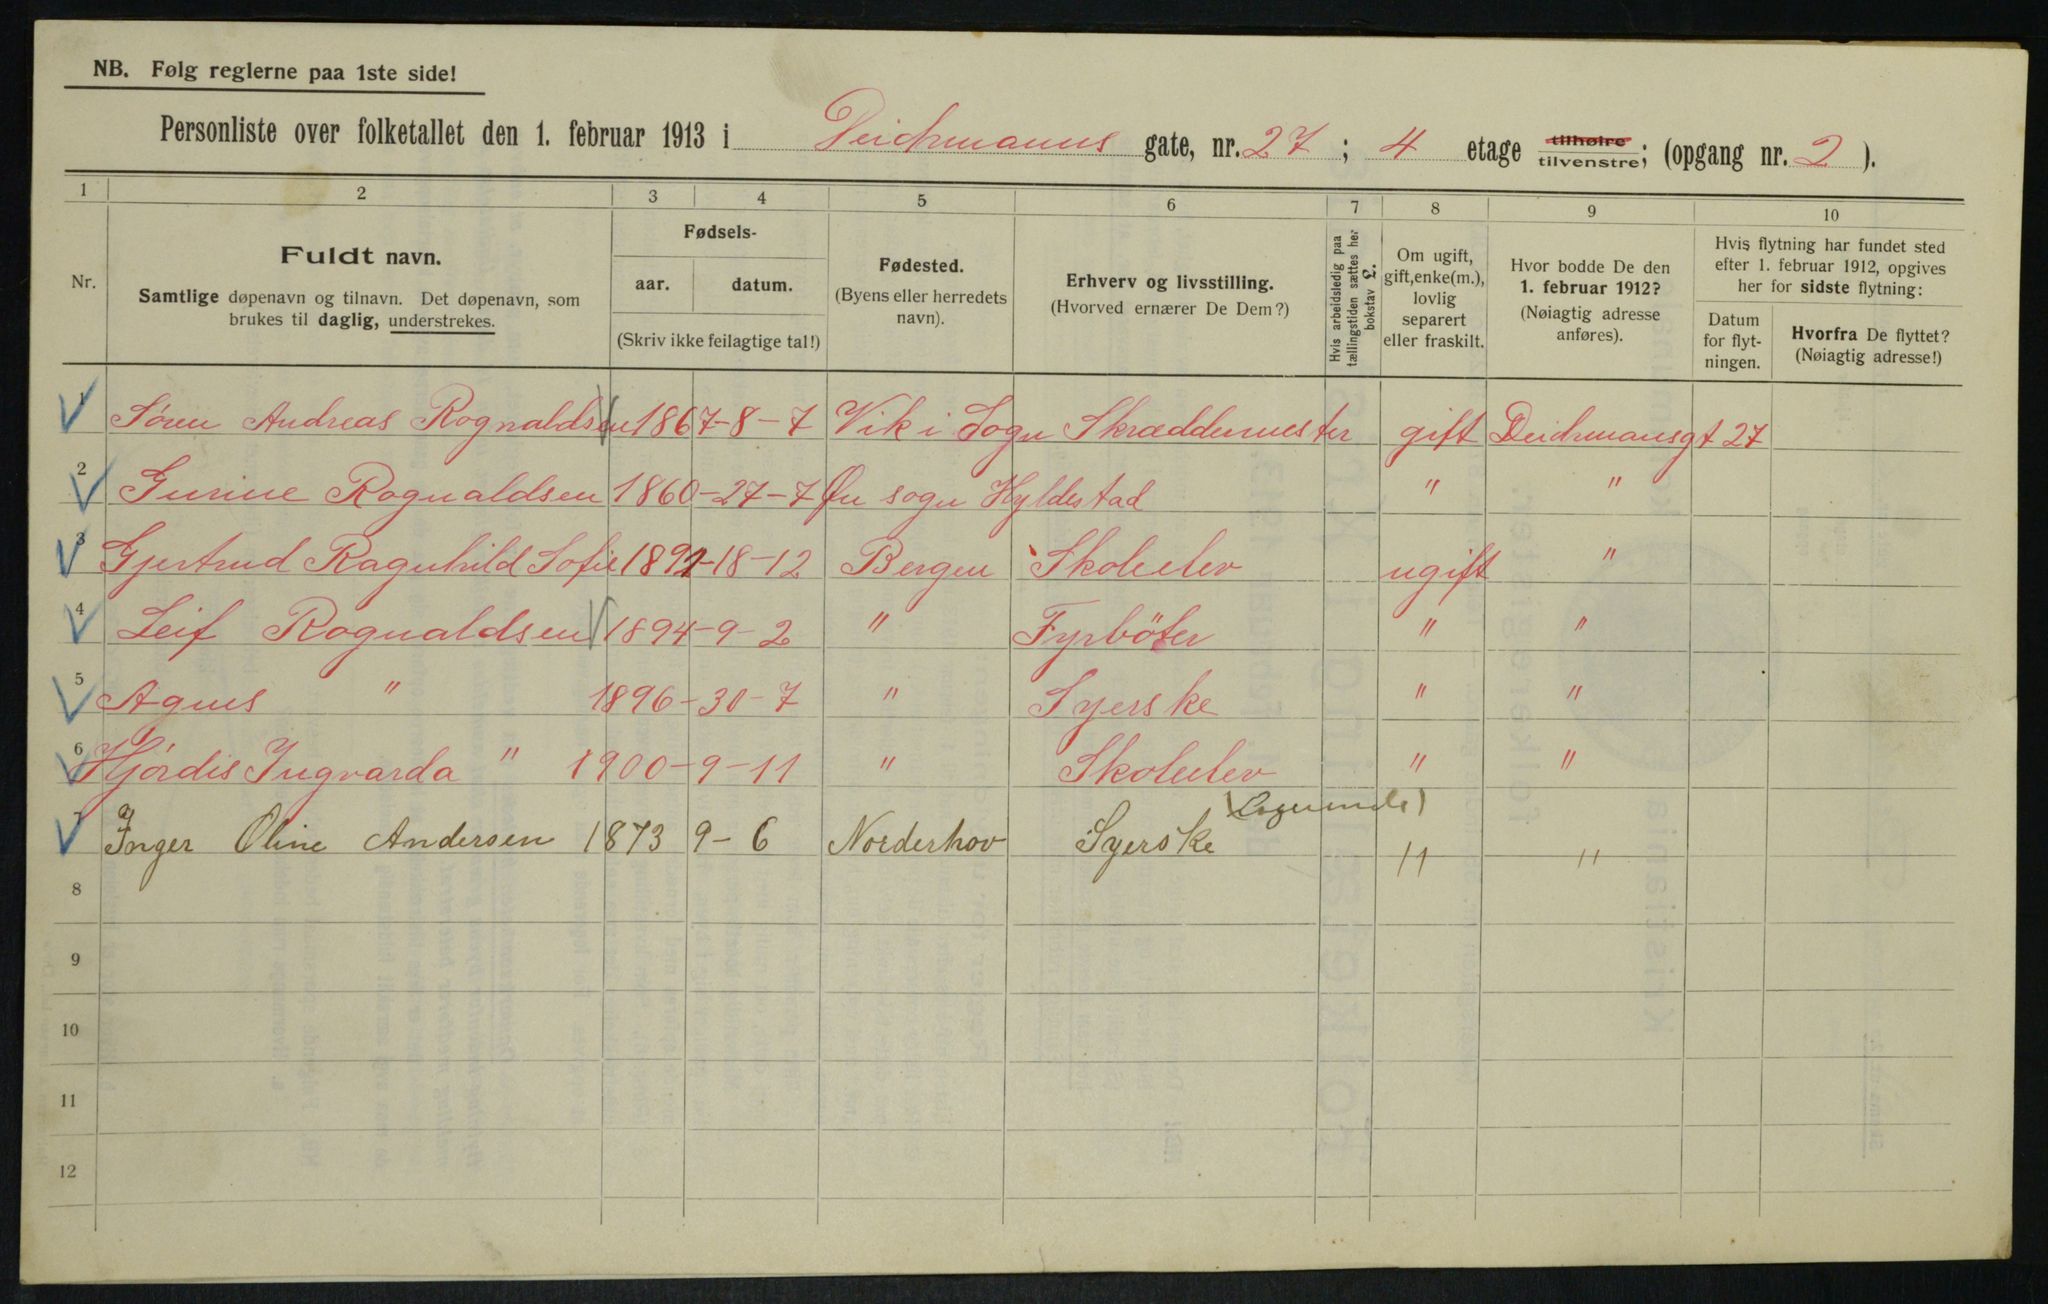 NB. Følg reglerne paa 1ste side!
Personliste over folketallet den 1. februar 1913 i Deichmanns gate, nr. 27 ; 4 etage tilhøire tilvenstre; (opgang nr. 2 ).
1 2 3 4 5 6 7 8 9 10
Nr.
Fuldt navn.
Samtlige døpenavn og tilnavn. Det døpenavn, som
brukes til daglig, understrekes.
Fødsels-
aar. datum.
(Skriv ikke feilagtige tal!)
Fødested.
(Byens eller herredets
navn).
Erhverv og livsstilling.
(Hvorved ernærer De Dem?)
Hvis arbeidsledig paa
tællingstiden sættes her
bokstav L.
Om ugift,
gift, enke(m.),
lovlig
separert
eller fraskilt.
Hvor bodde De den
1. februar 1912?
(Nøiagtig adresse
anføres).
Hvis flytning har fundet sted
efter 1. februar 1912, opgives
her for sidste flytning:
Datum
for flyt-
ningen.
Hvorfra De flyttet?
(Nøiagtig adresse!)
1 Søren Andreas Rognaldsen 1867-8-7 Vik i Sogn Skræddermester gift Deichmansgt 27
2 Gurine Rognaldsen 1860-27-7 Øn sogn Hyldestad " "
3 Gjertrud Ragnhild Sofie 1891-18-12 Bergen Skoleelev ugift "
4 Leif Rognaldsen 1894-9-2 " Fyrböter " "
5 Agnes " 1896-30-7 " Syerske " "
6 Hjørdis Ingvarda " 1900-9-11 " Skoleelev " "
7 Inger Oline Andersen 1873 9-6 Norderhov Syerske (Logerende) " "
8
9
10
11
12